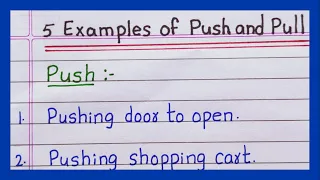 5 Examples of Push and Pull
Push :-
1. Pushing door to open.
2. Pushing shopping cart.